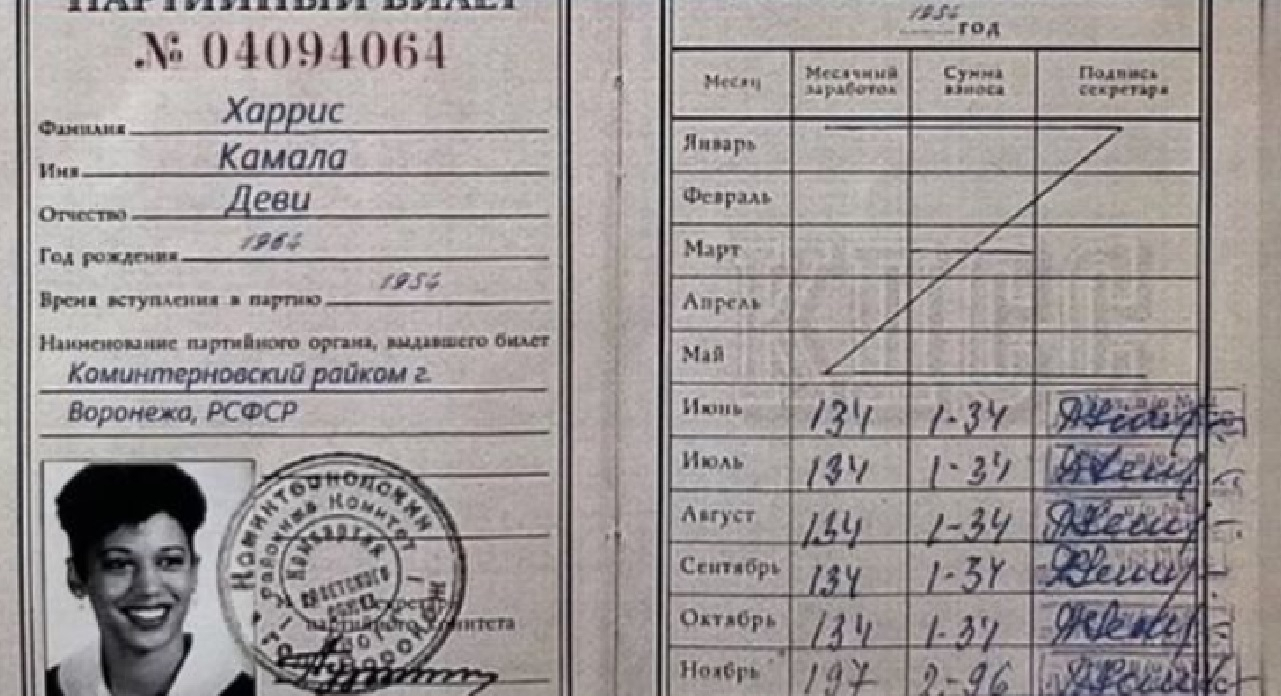 ПАРТИЙНЫЙ БИЛЕТ
№ 04094064
Фамилия Харрис
Имя Камала
Отчество Деви
Год рождения 1964
Время вступления в партию 1986
Наименование партийного органа, выдавшего билет
Коминтерновский райком г.
Воронежа, РСФСР
партийного комитета
год
Месяц Месячный заработок Сумма взноса Подпись секретаря
Январь
Февраль
Март
Апрель
Май
Июнь 134 1-34
Июль 134 1-34
Август 134 1-34
Сентябрь 134 1-34
Октябрь 134 1-34
Ноябрь 197 2-96